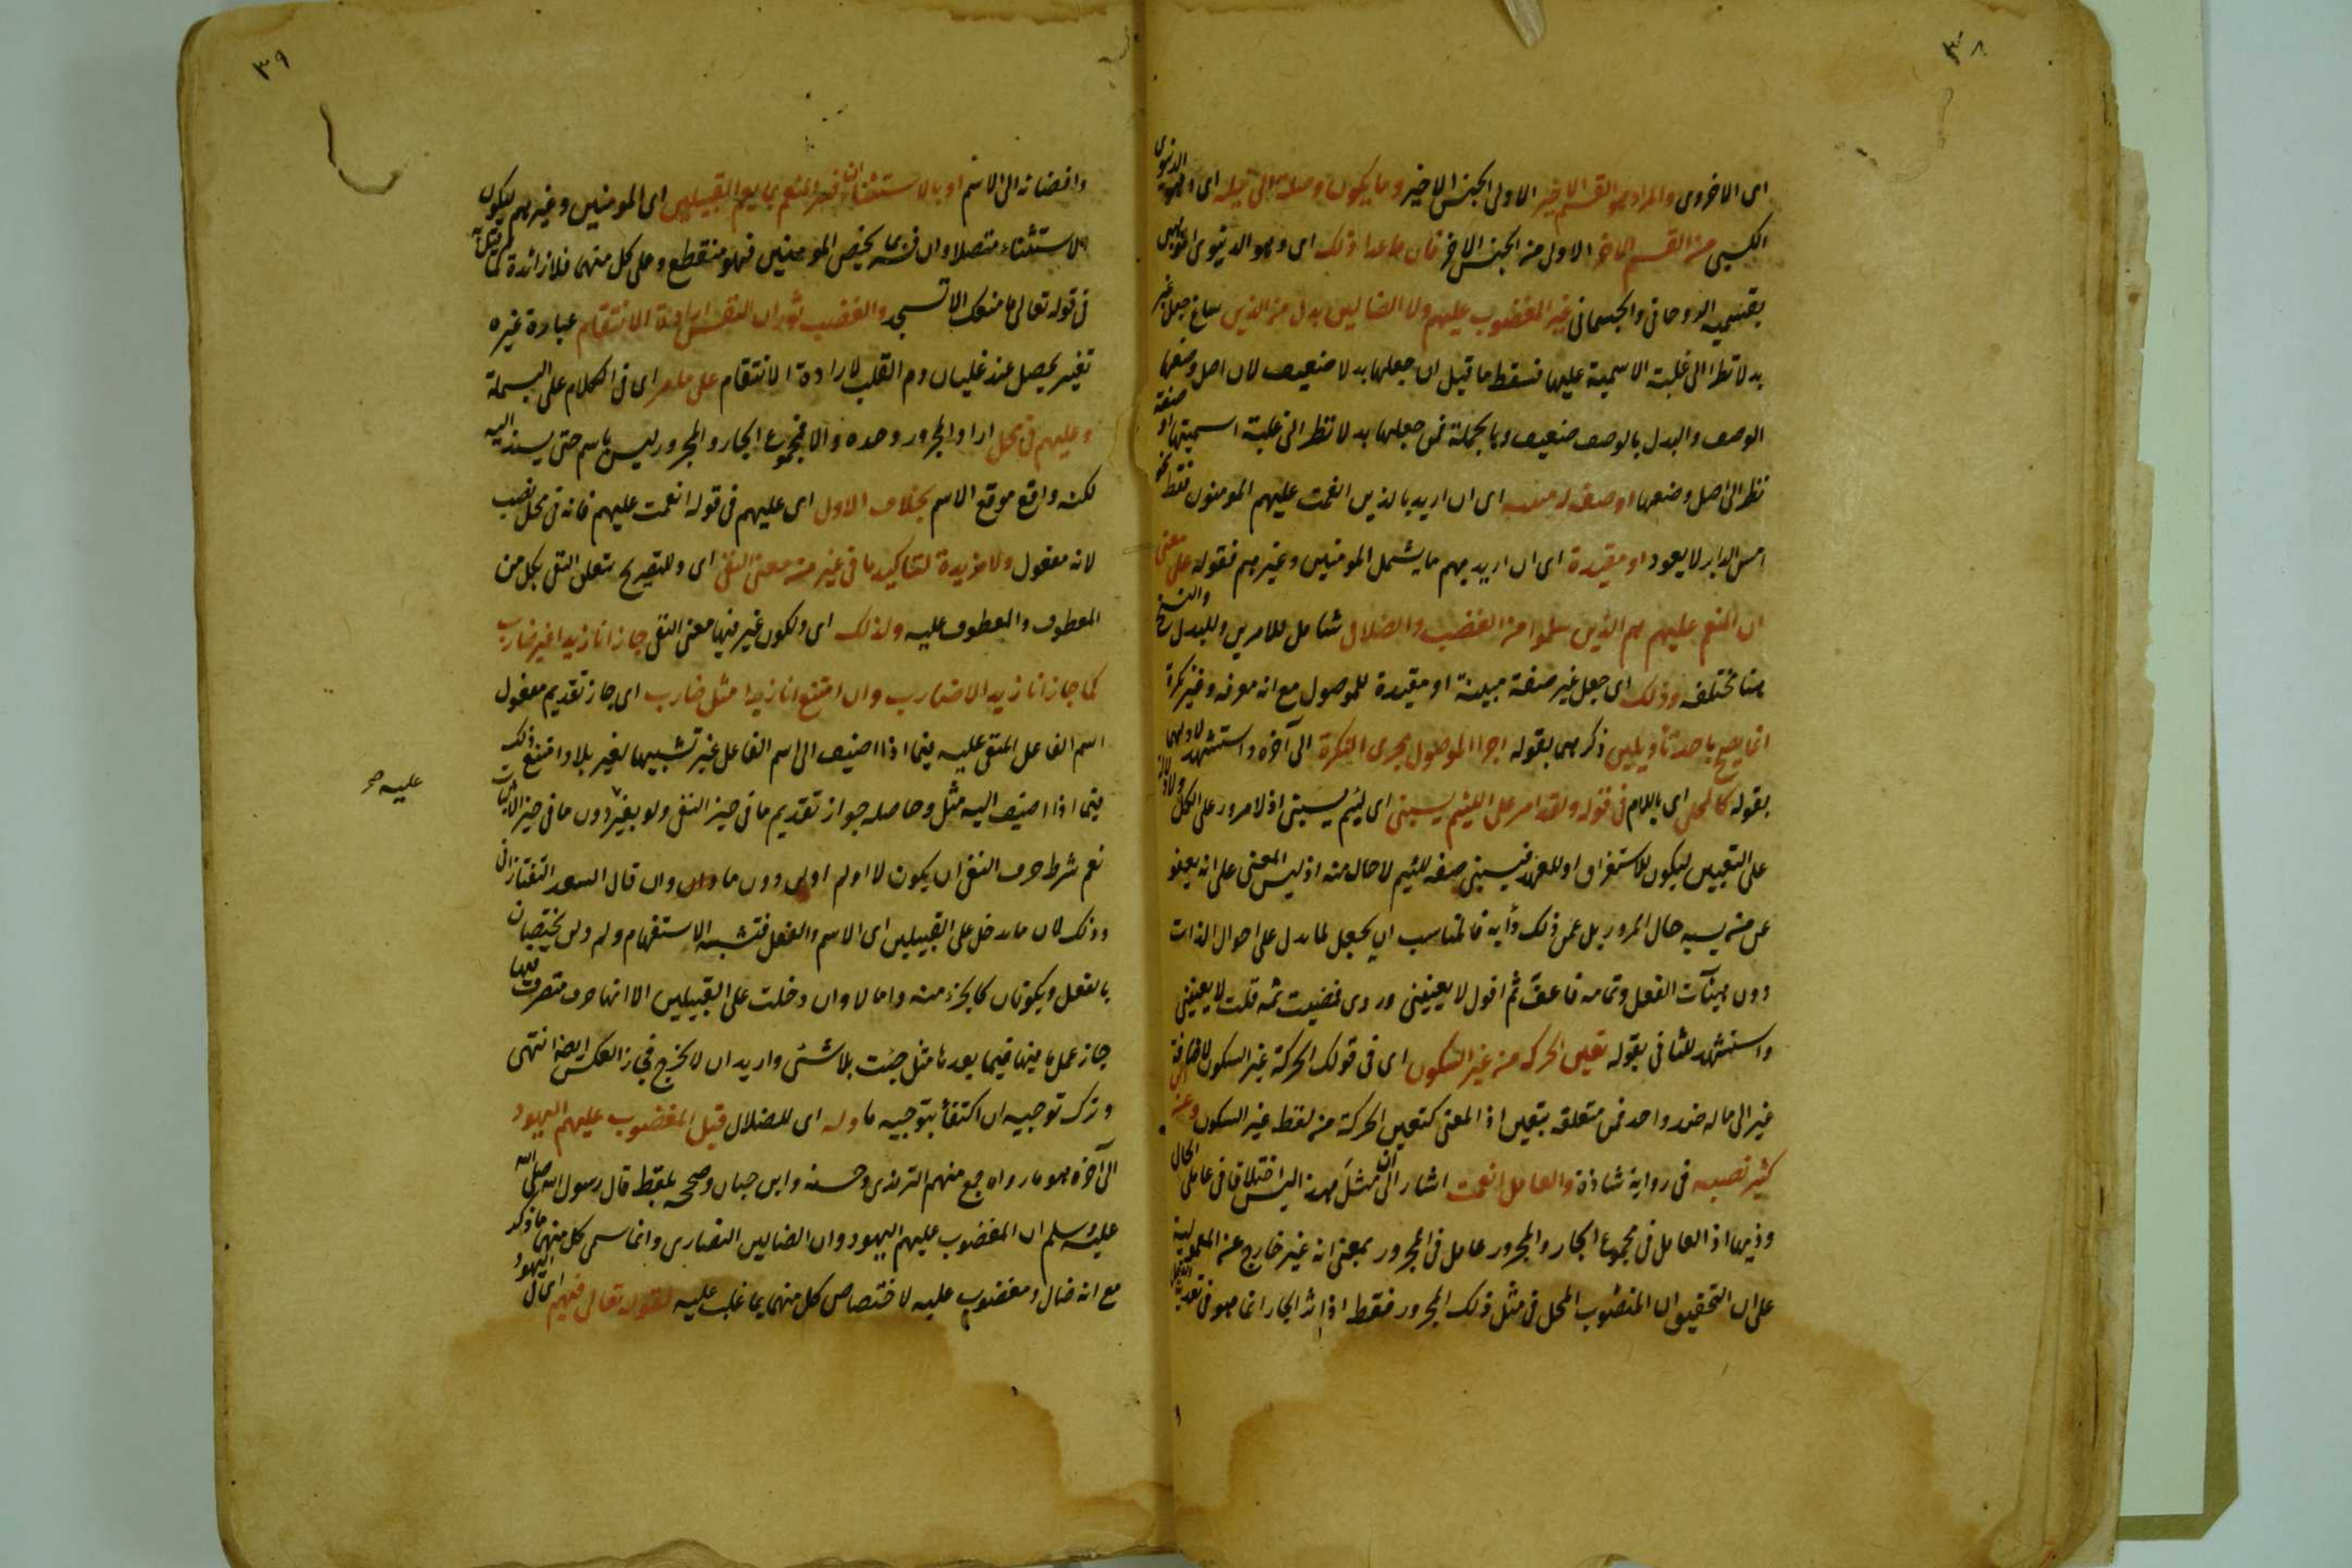 ٣٨
اى الاخروى والمراد هو القسم الاخير الاولى الجنس الاخير وما يكون وصلة الى نيله اى وهو الدنيوى
الكسبى من القسم الاخر الاول من الجنس الاخر فان ما عدا ذلك اى وهو الدنيوى الموهبى
بقسميه الروحانى والجسمانى غير المغضوب عليهم ولا الضالين بدل من الذين ساغ جعل غير
بدلا نظرا الى غلبة الاسمية عليها فسقط ما قيل ان جعلها بدلا ضعيف لان اصل وضعها
الوصف والبدل بالوصف ضعيف وبالجملة فمن جعلها بدلا نظر الى غلبة اسميتها او صفة
نظر الى اصل وضعها او صفة له مبينة اى ان اريد بالذين انعمت عليهم المومنون فقط نحو
امس الدابر لا يعود او مقيدة اى ان اريد بهم ما يشمل المومنين وغيرهم فقوله على معنى
ان المنعم عليهم هم الذين سلموا من الغضب والضلال شامل للامرين وللبدل والنسخ
هنا مختلفة وذلك اى جعل غير صفة مبينة او مقيدة للموصول مع انه معرفة وغير نكرة
انما يصح باحد تاويلين ذكرهما بقوله اجراء الموصول مجرى النكرة الى آخره واستشهد لاولهما
بقوله كالمحلى اى باللام فى قوله ولقد امر على اللئيم يسبنى اى لئيم يسبنى اذ لا مرور على الكل ولا دلالة
على التعيين ليكون للاستغراق او للعهد فيسبنى صفة للئيم لا حال منه اذ ليس المعنى على انه يعفو
عن من يسبه حال المرور بل عن ذلك دأبه فالمناسب ان يجعل لما يدل على احوال الذات
دون هيئآت الفعل وتمامه فاعف ثم اقول لا يعنينى وروى فمضيت ثمه قلت لا يعنينى
واستشهد للثانى بقوله تعين الحركة من غير السكون اى فى قولك الحركة غير السكون لاضافة
غير الى ماله ضد واحد فمن متعلقه بتعين اذ المعنى كتعين الحركة من لفظ غير السكون وعن ابن
كثير نصبه فى رواية شاذة والعامل انعمت اشار الى ان مثل هذا ليس اختلافا فى عاملى الحال
وذيها اذ العامل فى مجموع الجار والمجرور عامل فى المجرور بمعنى انه غير خارج عن المعمولية
على ان التحقيق ان المنصوب المحل فى مثل ذلك المجرور فقط اذ اثر الجار انما هو فى تعدية الفعل
٣٩
وافضائه الى الاسم او بالاستثناء ان فسر النعم بما يعم القبيلين اى المومنين وغيرهم ليكون
الاستثناء متصلا وان فسر بما يخص المومنين فهو منقطع وعلى كل منهما فلا زائدة كما قيل به
فى قوله تعالى ما منعك الا تسجد والغضب ثوران النفس ارادة الانتقام عبارة غيره
تغير يحصل عند غليان دم القلب لارادة الانتقام على ما مر اى فى الكلام على البسملة
وعليهم فى محل اراد المجرور وحده والا فمجموع الجار والمجرور ليس باسم حتى يسند اليه
لكنه واقع موقع الاسم بخلاف الاول اى عليهم فى قوله انعمت عليهم فانه فى محل نصب
لانه مفعول ولا مزيدة لتاكيد ما فى غير من معنى النفى اى وللتصريح بتعلق النفى بكل من
المعطوف والمعطوف عليه ولذلك اى ولكون غير فيها معنى النفى جاز انا زيدا غير ضارب
كما جاز انا زيدا لا ضارب وان امتنع انا زيدا مثل ضارب اى جاز تقديم معمول
اسم الفاعل المنفى عليه فيما اذا اضيف الى اسم الفاعل غير تشبيها لغير بلا وامتنع ذلك
عليه صح
فيما اذا اضيف اليه مثل وحاصله جواز تقديم ما فى حيز النفى ولو بغير دون ما فى حيز الاثبات
نعم شرط حرف النفى ان يكون لا او لم او لن دون ما وان وان قال السعد التفتازانى
وذلك لان ما يدخل على القبيلين اى الاسم والفعل فتشبه الاستفهام ولم ولن يختصان
بالفعل ويكونان كالجزء منه واما لا وان دخلت على القبيلين الا انها حرف متصرف فيها
جاز عمل ما فيها فيما بعدها مثل جئت بلا شئ واريد ان لا تخرج فجاز العكس ايضا انتهى
وترك توجيه ان اكتفاء بتوجيه ما وله اى للضلال قيل المغضوب عليهم اليهود
الى آخره هو ما رواه جمع منهم الترمذى وحسنه وابن حبان وصححه بلفظ قال رسول الله صلى الله
عليه وسلم ان المغضوب عليهم اليهود وان الضالين النصارى وانما سمى كل منهما ما ذكر
مع انه ضال ومغضوب عليه لاختصاص كل منهما بما غلب عليه لقوله تعالى فيهم اى فى اليهود